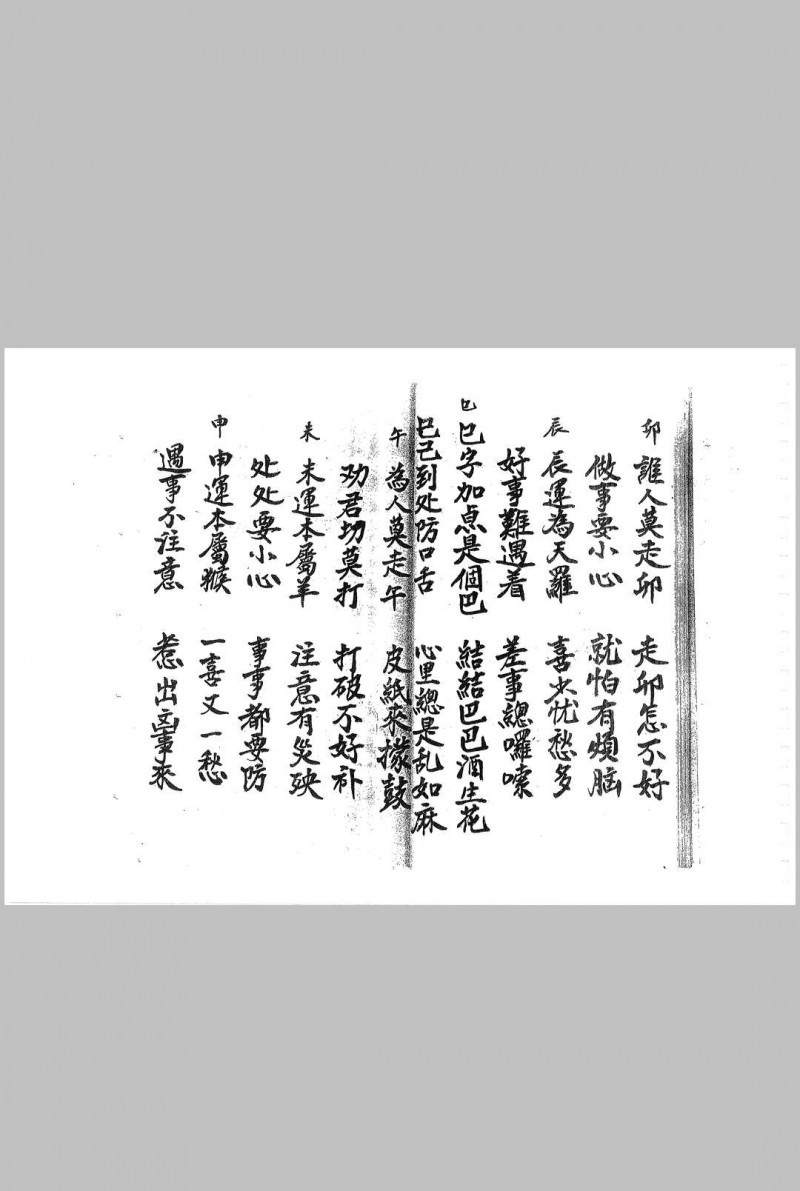 卯 誰人莫走卯 走卯怎不好
做事要小心 就怕有煩脑
辰 辰運為天羅 喜少忧愁多
好事難遇着 差事總囉嗦
巳 巳字加点是個巴 結結巴巴酒生花
巳己到处防口舌 心里總是乱如麻
午 為人莫走午 皮紙來掾鼓
劝君切莫打 打破不好补
未 未運本屬羊 注意有災殃
处处要小心 事事都要防
申 申運本屬猴 一喜又一愁
遇事不注意 惹出 事來